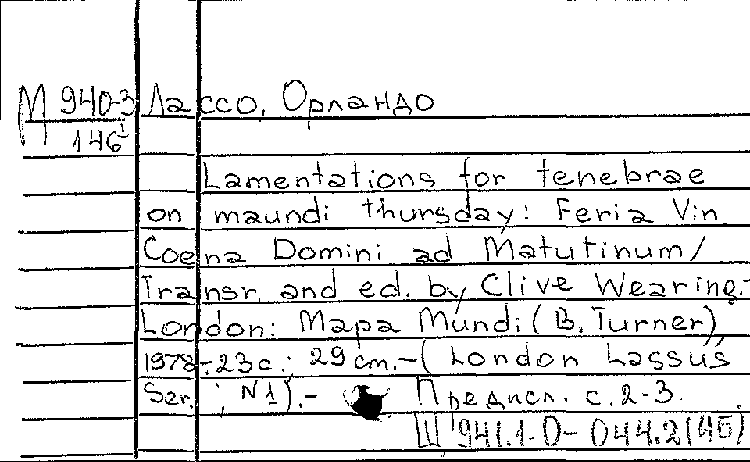 М 940-3 Лассо, Орландо
146¹
Lamentations for tenebrae
on maundi thursday: Feria Vin
Coena Domini ad Matutinum/
Transr. and ed. by Clive Wearing.-
London: Mapa Mundi (B. Turner),
1978.-23с.; 29cm.-(London Lassus
Ser. ; N1).- Предисл. с.2-3.
Ш 941.1-0-044.2(45)